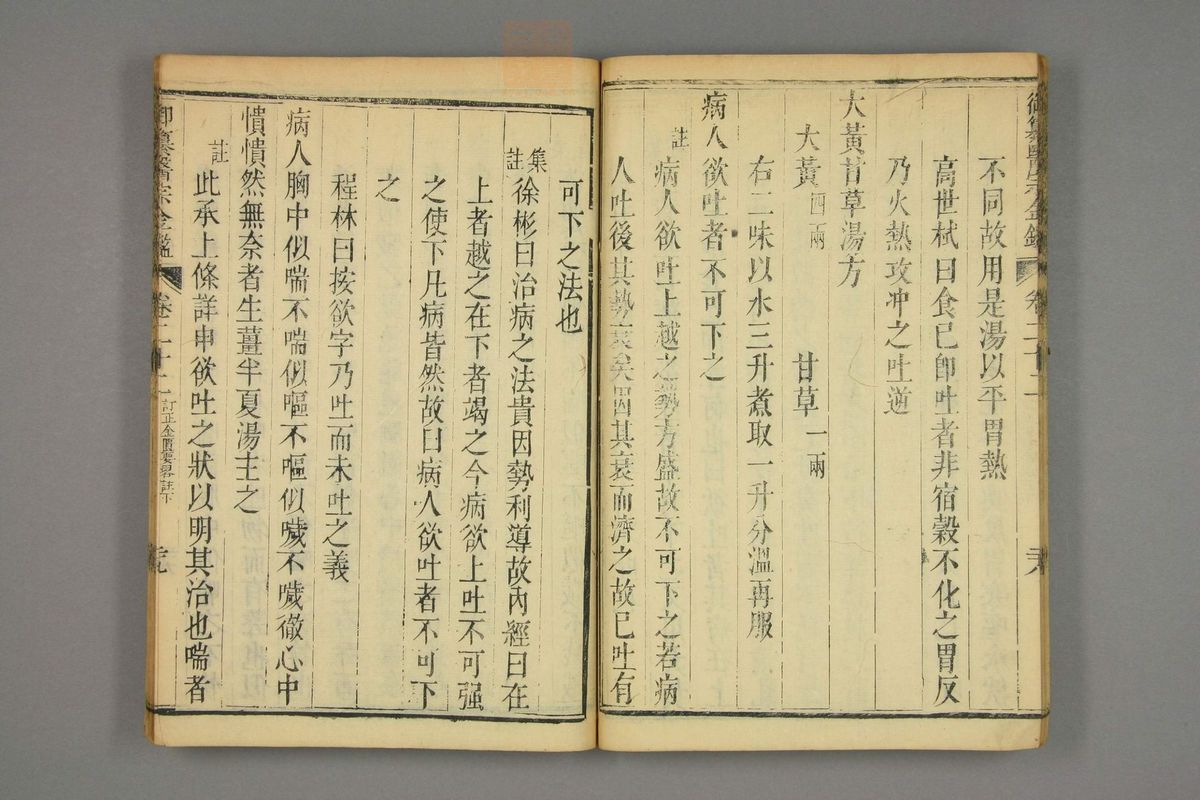 御纂醫宗金鑑 卷二十二 三十八
不同故用是湯以平胃熱
高世栻曰食已即吐者非宿穀不化之胃反
乃火熱攻冲之吐逆
大黃甘草湯方
大黃四兩 甘草一兩
右二味以水三升煮取一升分溫再服
病人欲吐者不可下之
註病人欲吐上越之勢方盛故不可下之若病
人吐後其勢衰矣因其衰而濟之故已吐有
可下之法也
集註徐彬曰治病之法貴因勢利導故內經曰在
上者越之在下者竭之今病欲上吐不可强
之使下凡病皆然故曰病人欲吐者不可下
之
程林曰按欲字乃吐而未吐之義
病人胸中似喘不喘似嘔不嘔似噦不噦徹心中
憒憒然無奈者生薑半夏湯主之
註此承上條詳申欲吐之狀以明其治也喘者
御纂醫宗金鑑 卷二十二 訂正金匱要畧註下 三十九